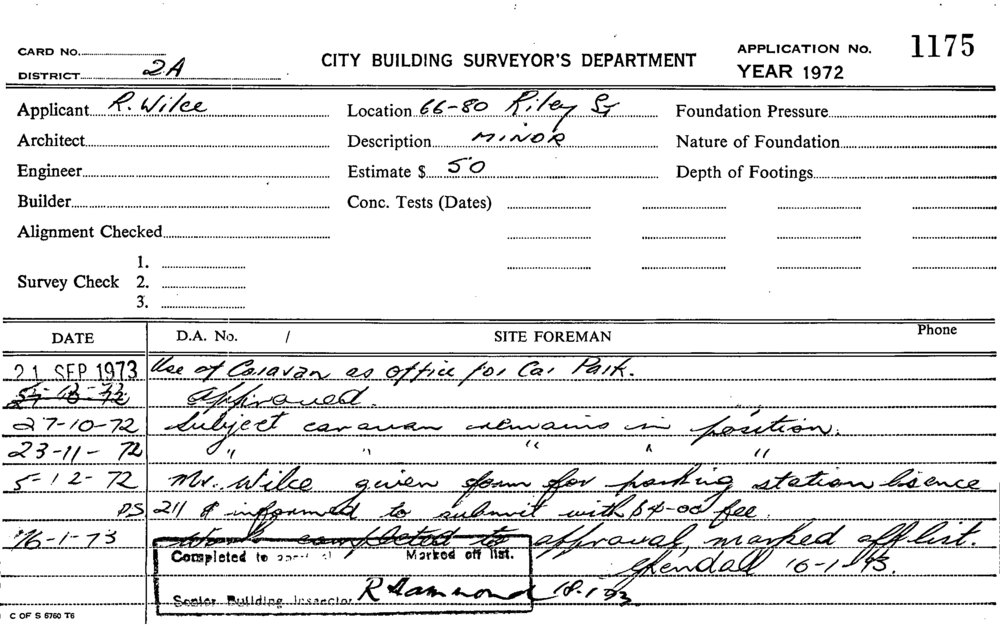 CARD No.
DISTRICT 2A
CITY BUILDING SURVEYOR'S DEPARTMENT
APPLICATION No. 1175
YEAR 1972
Applicant R. Wilce
Location 66-80 Riley St
Foundation Pressure
Architect
Description MINOR
Nature of Foundation
Engineer
Estimate $ 50
Depth of Footings
Builder
Conc. Tests (Dates)
Alignment Checked
Survey Check
1.
2.
3.
DATE D.A. No. / SITE FOREMAN Phone
21 SEP 1973 Use of Caravan as office for Car Park.
Approved.
27-10-72 Subject caravan remains in position.
23-11-72 " " " " "
5-12-72 Mr. Wilce given form for parking station lisence
PS 211 & informed to submit with $4-00 fee.
16-1-73 Work completed to approval, marked off list.
16-1-73.
Completed to Marked off list.
Senior Building Inspector R Hammond 18-1-73
C OF S 6760 T6